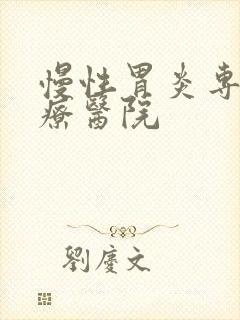 慢性胃炎專
療醫院
劉慶文